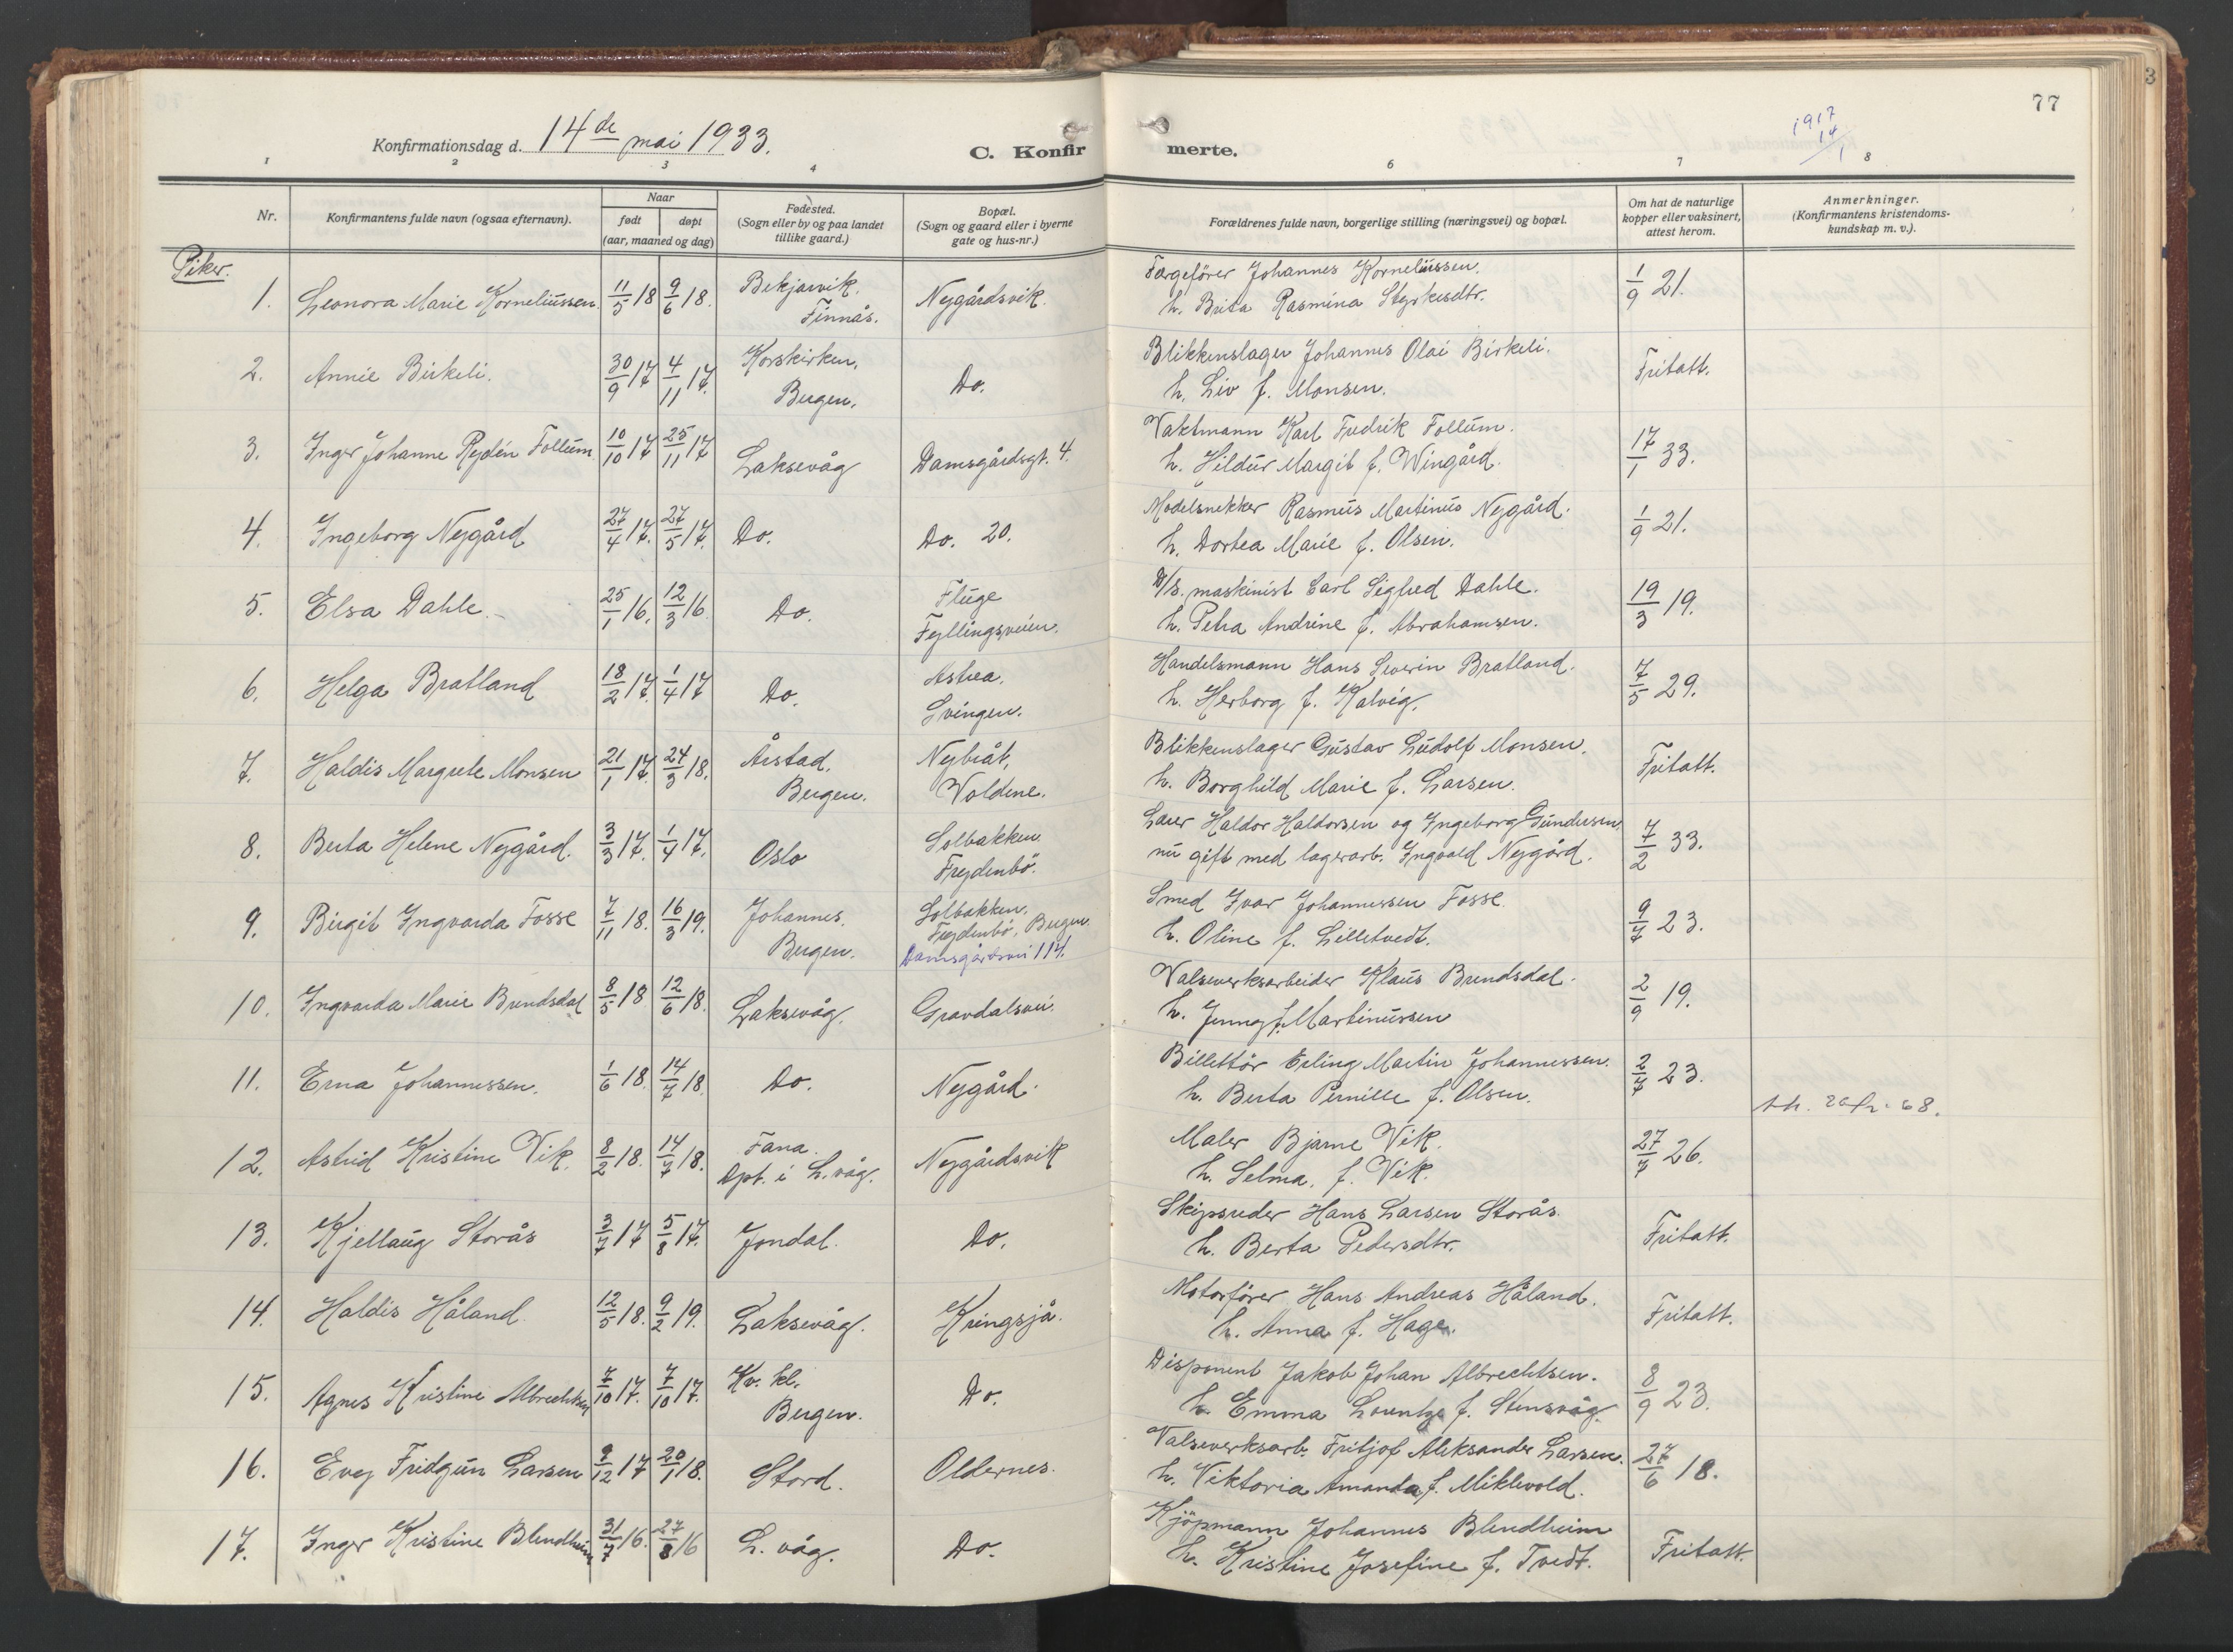 77
1917
14
1
Konfirmationsdag d. 14de mai 1933.
C. Konfirmerte.
1 2 3 4 6 7 8
Nr.
Konfirmantens fulde navn (ogsaa efternavn).
Naar
født døpt
(aar, maaned og dag)
Fødested.
(Sogn eller by og paa landet
tillike gaard.)
Bopæl.
(Sogn og gaard eller i byerne
gate og hus-nr.)
Forældrenes fulde navn, borgerlige stilling (næringsvei) og bopæl.
Om hat de naturlige
kopper eller vaksinert,
attest herom.
Anmerkninger.
(Konfirmantens kristendoms-
kundskap m. v.).
Piker.
1. Leonora Marie Korneliussen 11/5 18 9/6 18. Bekjarvik, Finnås. Nygårdsvik. Færgefører Johannes Korneliussen. 1/9 21.
h. Brita Rasmina Styrkesdtr.
2. Annie Birkeli. 30/9 17 4/11 17. Korskirken, Bergen. Do. Blikkenslager Johannes Olai Birkeli. Fritatt.
h. Liv f. Monsen.
3. Inger Johanne Rydén Follum 10/10 17 25/11 17 Laksevåg Damsgårdsgt. 4. Vaktmann Karl Fredrik Follum. 17/1 33.
h. Hildur Margit f. Wingård.
4. Ingeborg Nygård 27/4 17. 27/5 17. Do. Do. 20. Modelsnekker Rasmus Martinus Nygård. 1/9 21.
h. Dortea Marie f. Olsen.
5. Elsa Dahle. 25/1 16. 12/3 16 Do. Fluge Fyllingsveien. D/s. maskinist Carl Sigfred Dahle. 19/3 19.
h. Petra Andrine f. Abrahamsen.
6. Helga Bratland 18/2 17. 1/4 17 Do. Astrea. Svingen. Handelsmann Hans Severin Bratland. 7/5 29.
h. Herborg f. Kalvig.
7. Haldis Margrete Monsen 21/1 17. 24/3 18. Årstad, Bergen. Nybråt, Voldene. Blikkenslager Gustav Ludolf Monsen. Fritatt.
h. Borghild Marie f. Larsen.
8. Berta Helene Nygård. 3/3 17. 1/4 17. Oslo Solbakken Frydenbö. Haldor Haldorsen og Ingeborg Gundersen, 7/2 33.
nu gift med lagerarb. Ingvald Nygård.
9. Birgit Ingvarda Fosse 7/11 18. 16/3 19. Johannes, Bergen. Solbakken, Frydenbö, Bergen. Damsgårdsvei 114. Smed Ivar Johannessen Fosse. 9/7 23.
h. Oline f. Lilletvedt.
10. Ingvarda Marie Brundsdal 8/5 18 12/6 18. Laksevåg. Gravdalsvei. Valseverksarbeider Klaus Brundsdal. 2/9 19.
h. Jenny f. Martinussen
11. Erna Johannessen. 1/6 18. 14/7 18. Do. Nygård. Billettör Erling Martin Johannessen. 2/7 23.
h. Berta Pernille f. Olsen.
12. Astrid Kristine Vik. 8/2 18. 14/7 18. Fana. Dpt. i L.våg. Nygårdsvik Maler Bjarne Vik. 27/7 26.
h. Selma, f. Vik.
13. Kjellaug Storås 3/7 17 5/8 17. Jondal. Do. Skipsreder Hans Larsen Storås. Fritatt.
h. Berta Pedersdtr.
14. Haldis Håland 12/5 18. 9/2 19. Laksevåg. Kringsjå. Motorfører Hans Andreas Håland. Fritatt.
h. Anna f. Hage.
15. Agnes Kristine Albrechtsen 7/10 17. 7/10 17. Kv. kl. Bergen. Do. Disponent Jakob Johan Albrechtsen. 8/9 23.
h. Emma Lorentze f. Stensvåg.
16. Evy Fridgun Larsen 9/12 17 20/1 18. Stord. Oldernes. Valseverksarb. Fritjof Aleksander Larsen. 27/6 18.
h. Viktoria Amanda f. Miklevold.
17. Inger Kristine Blendheim 31/7 16. 27/8 16 L. våg. Do. Kjöpmann Johannes Blendheim Fritatt.
h. Kristine Josefine f. Tvedt.